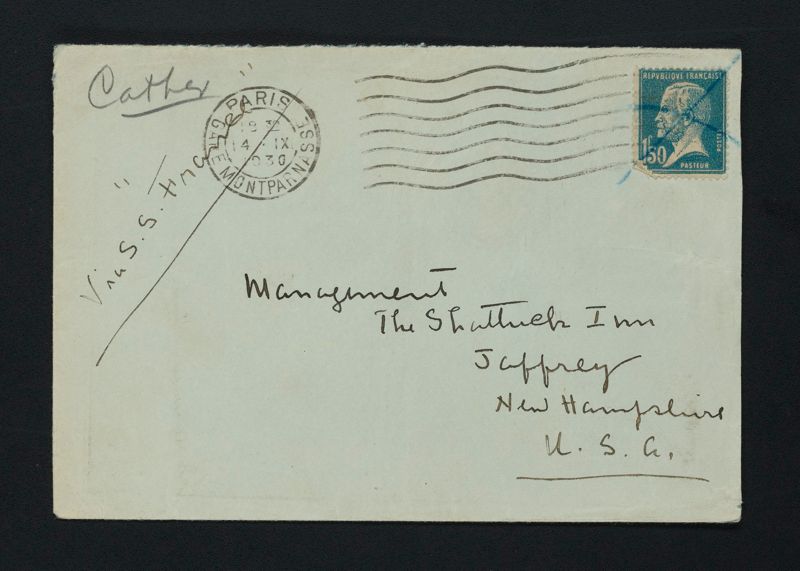 Cather
PARIS
GARE MONTPARNASSE
14 · IX
1930
REPUBLIQUE FRANÇAISE
1F50
POSTES
PASTEUR
Via S.S.
Management
The Shattuck Inn
Jaffrey
New Hampshire
U. S. A.